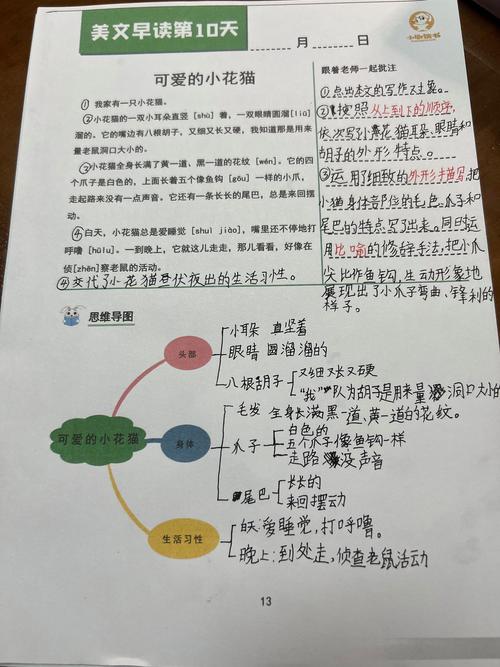 美文早读第10天
月 日
小脚读书
可爱的小花猫
①我家有一只小花猫。
②小花猫的一双小耳朵直竖[shù]着，一双眼睛圆溜[liū]
溜的。它的嘴边有八根胡子，又细又长又硬，我知道那是用来
量老鼠洞口大小的。
③小花猫全身长满了黄一道、黑一道的花纹[wén]。它的四
个爪子是白色的，上面长着五个像鱼钩[gōu]一样的小爪，
走起路来没有一点声音。它还有一条长长的尾巴，总是来回摆
动。
④白天，小花猫总是爱睡觉[shuì jiào]，嘴里还不停地打
呼噜[hūlu]。一到晚上，它就这儿走走，那儿看看，好像在
侦[zhēn]察老鼠的活动。
④交代了小花猫昼伏夜出的生活习性。
跟着老师一起批注
①点出本文的写作对象。
②按照从上到下的顺序，
依次写小花猫耳朵、眼睛和
胡子的外形特点。
③运用了细致的外形描写，把
小猫身体部位的毛色、爪子和
尾巴的特点写了出来。同时运
用比喻的修辞手法，把小爪
尖比作鱼钩，生动形象地
展现出了小爪子弯曲、锋利的
样子。
思维导图
可爱的小花猫
头部
小耳朵 直坚着
眼睛 圆溜溜的
八根胡子
又细又长又硬
"我"认为胡子是用来量洞口大小的
身体
毛发 全身长满黑一道、黄一道的花纹。
爪子
白色的
五个爪子像鱼钩一样
走路没声音
尾巴
长长的
来回摆动
生活习性
白天：爱睡觉，打呼噜。
晚上：到处走，侦查老鼠活动
13